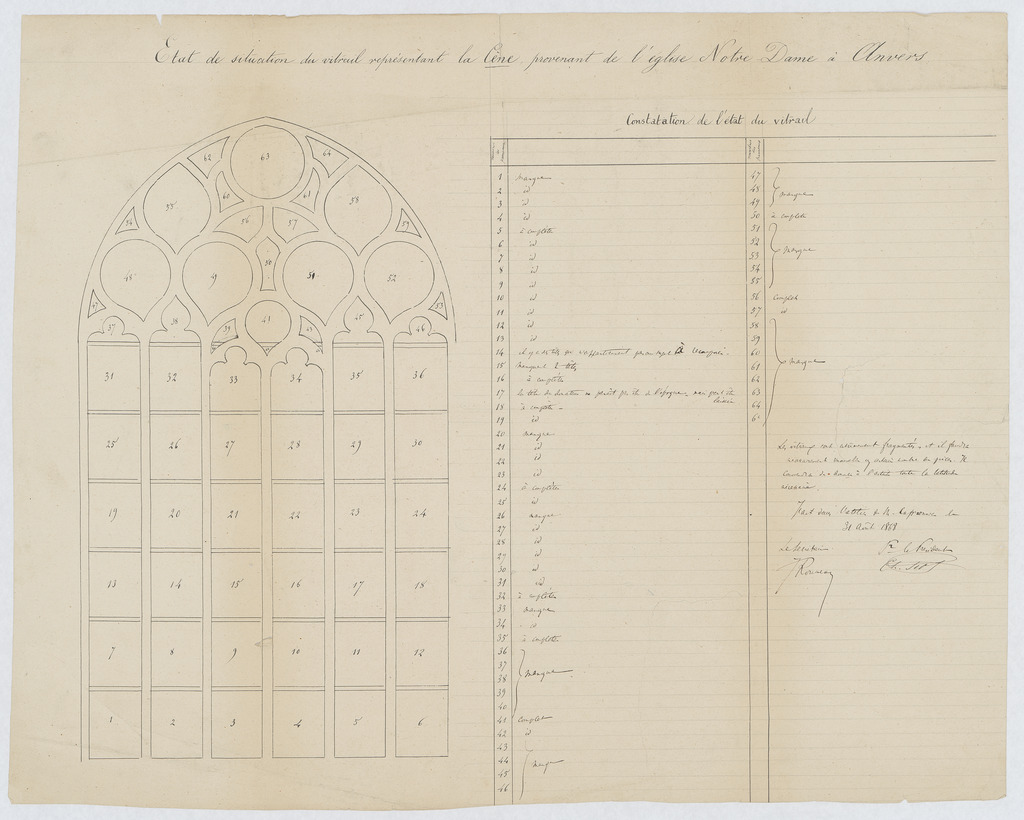 Etat de situation du vitrail représentant la Cène provenant de l'église Notre Dame à Anvers
Constatation de l'état du vitrail
62 63 64
55 60 61 58
54 56 57 59
48 49 50 51 52
47 53
37 38 39 41 45 46
31 32 33 34 35 36
25 26 27 28 29 30
19 20 21 22 23 24
13 14 15 16 17 18
7 8 9 10 11 12
1 2 3 4 5 6
1 manque
2 id
3 id
4 id
5 à complèter
6 id
7 id
8 id
9 id
10 id
11 id
12 id
13 id
14 il y a
15 manque 2 têtes
16 à complèter
17 la tête du donateur
18 à complèter
19 id
20 manque
21 id
22 id
23 id
24 à complèter
25 id
26 manque
27 id
28 id
29 id
30 id
31 id
32 à complèter
33 manque
34 id
35 à complèter
36
37
38 manque
39
40
41 complet
42 id
43
44 manque
45
46
47
48 manque
49
50 à complèter
51
52 manque
53
54
55
56 complet
57 id
58
59
60
61 manque
62
63
64
6
et il faudra
l'artiste toute la latitude
nécessaire.
Fait dans l'atelier de M. Capronnier le
31 Août 1868
Le Secrétaire
Pr le Président
J Rousseau